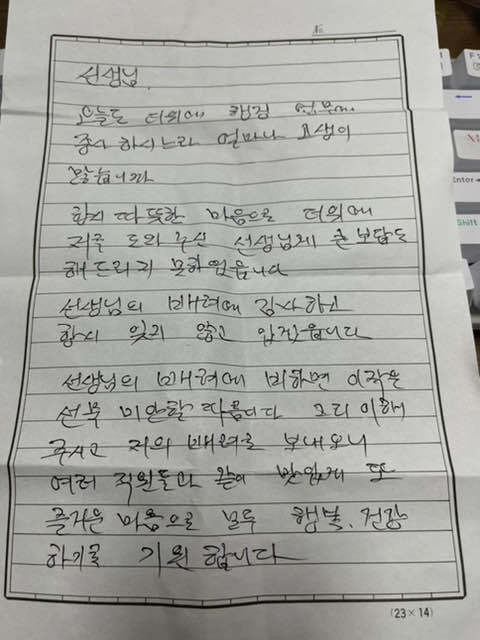 No
선생님,
오늘도 더위에 행정 업무에
종사 하시느라 얼마나 고생이
많습니까
항시 따뜻한 마음으로 더위에
저를 도와 주신 선생님께 큰 보답도
해드리지 못하였읍니다
선생님의 배려에 감사하고
항시 잊지 않고 있겠읍니다
선생님의 배려에 비하면 이작은
선물 미안할 따름이다 그리 이해
주시고 저의 배려를 보내오니
여러 직원들과 같이 맛있게 또
즐거운 마음으로 모두 행복, 건강
하기를 기원 합니다
(23×14)
Enter
Shift